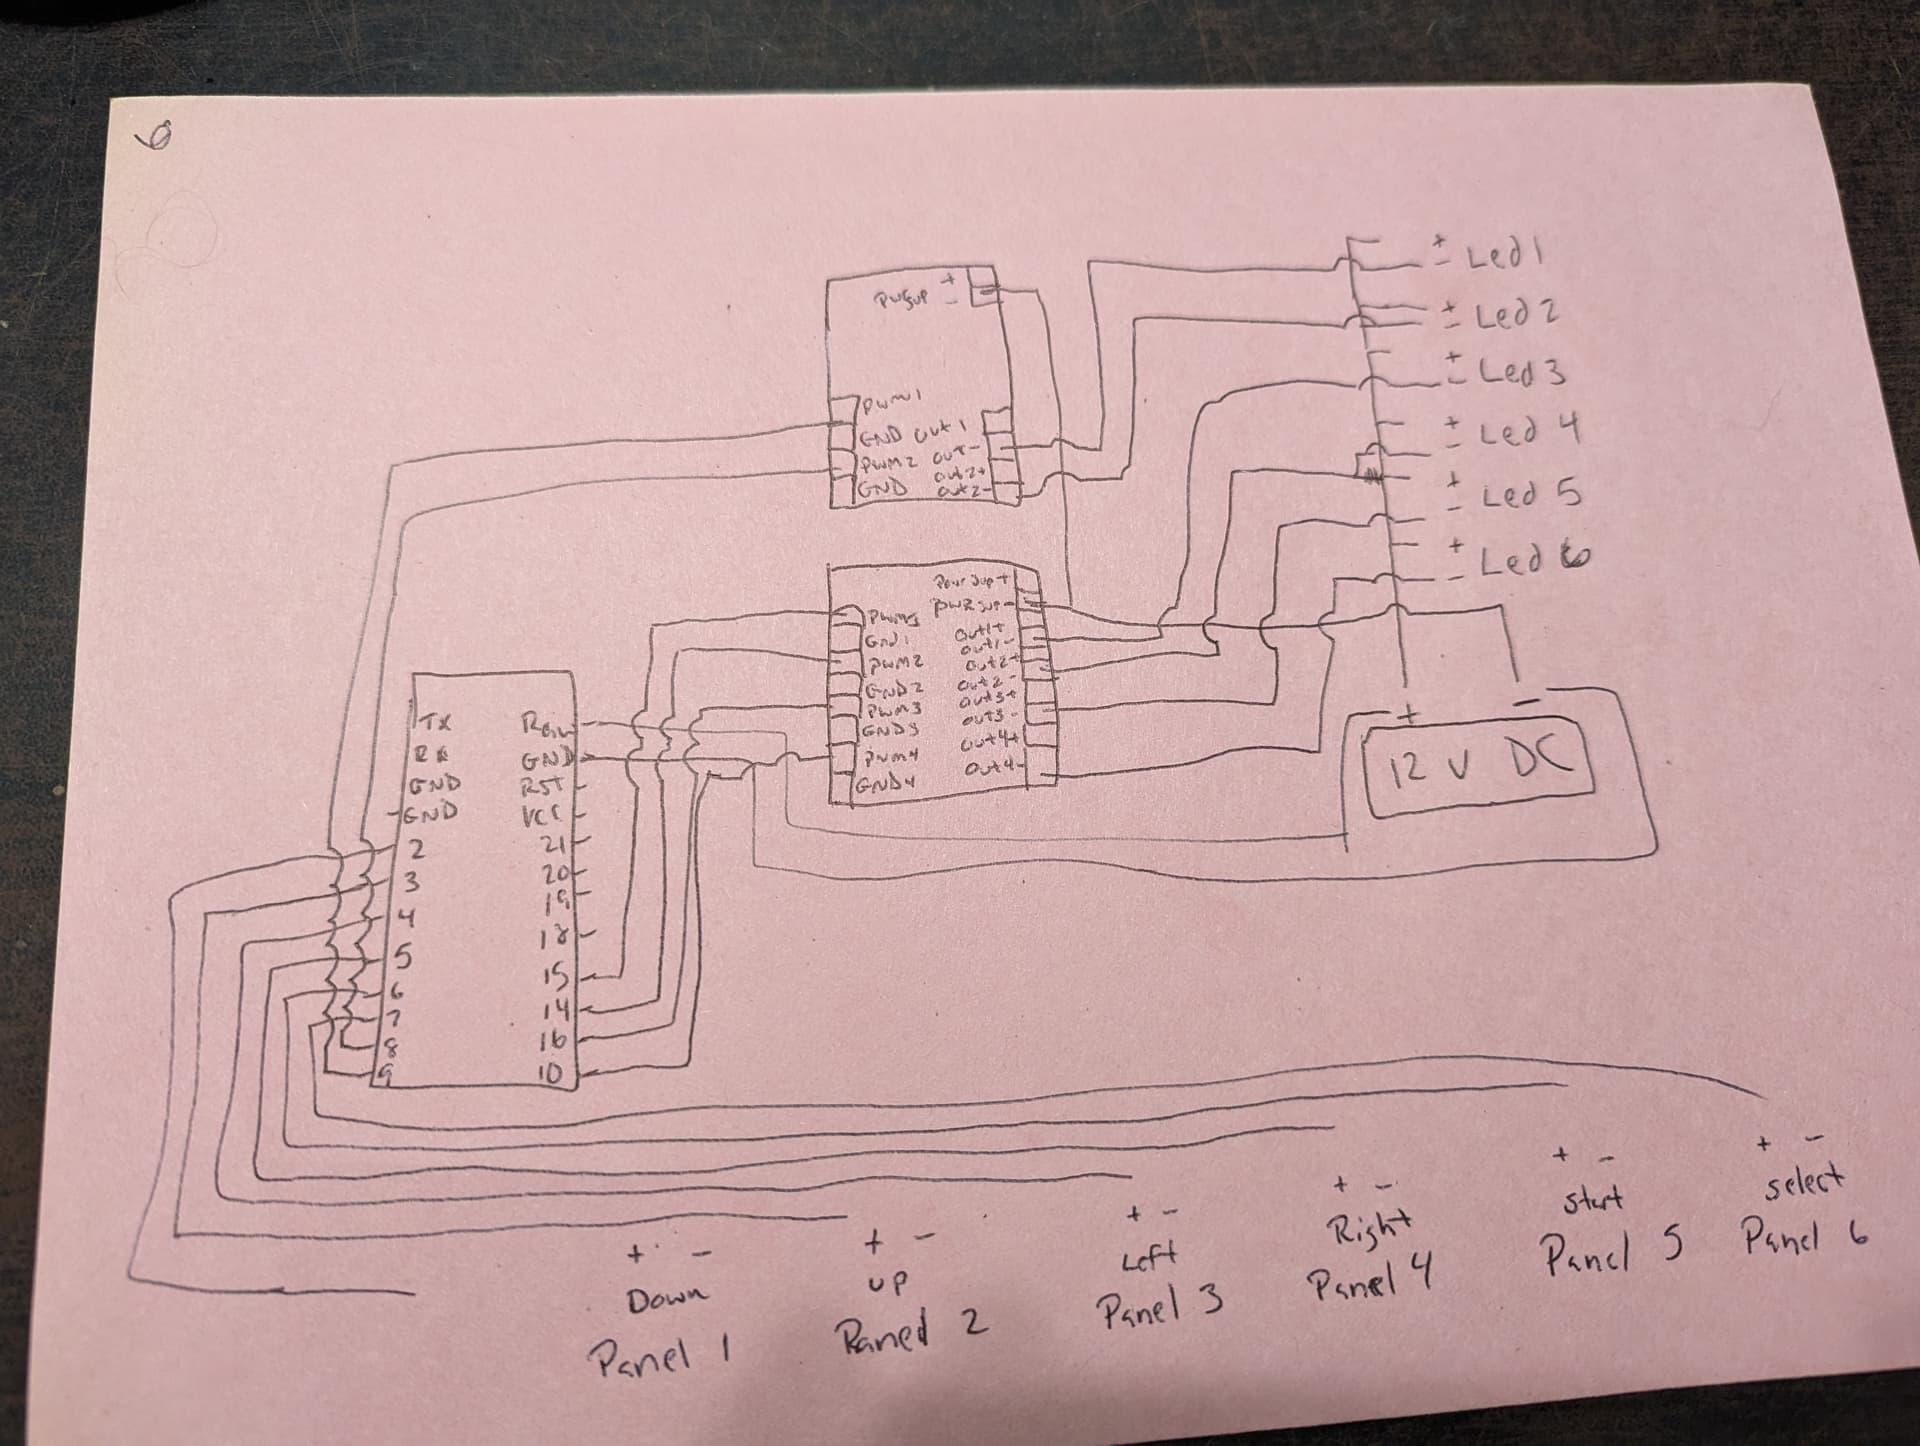 6
PWM1
GND out 1
PWM2 out-
out2+
GND out2-
+ Led 1
-
+ Led 2
-
+ Led 3
-
+ Led 4
-
+ Led 5
-
+ Led 6
-
Powr Sup+
PWR sup-
out1+
GND1 out1-
PWM2 out2+
GND2 out2-
PWM3 out3+
GND3 out3-
PWM4 out4+
GND4 out4-
TX Raw
RX GND
GND RST
GND VCC
2 21
3 20
4 19
5 18
6 15
7 14
8 16
9 10
+ -
12 V DC
+ -
Down
Panel 1
+ -
up
Paned 2
+ -
Left
Panel 3
+ -
Right
Panel 4
+ -
start
Panel 5
+ -
select
Panel 6